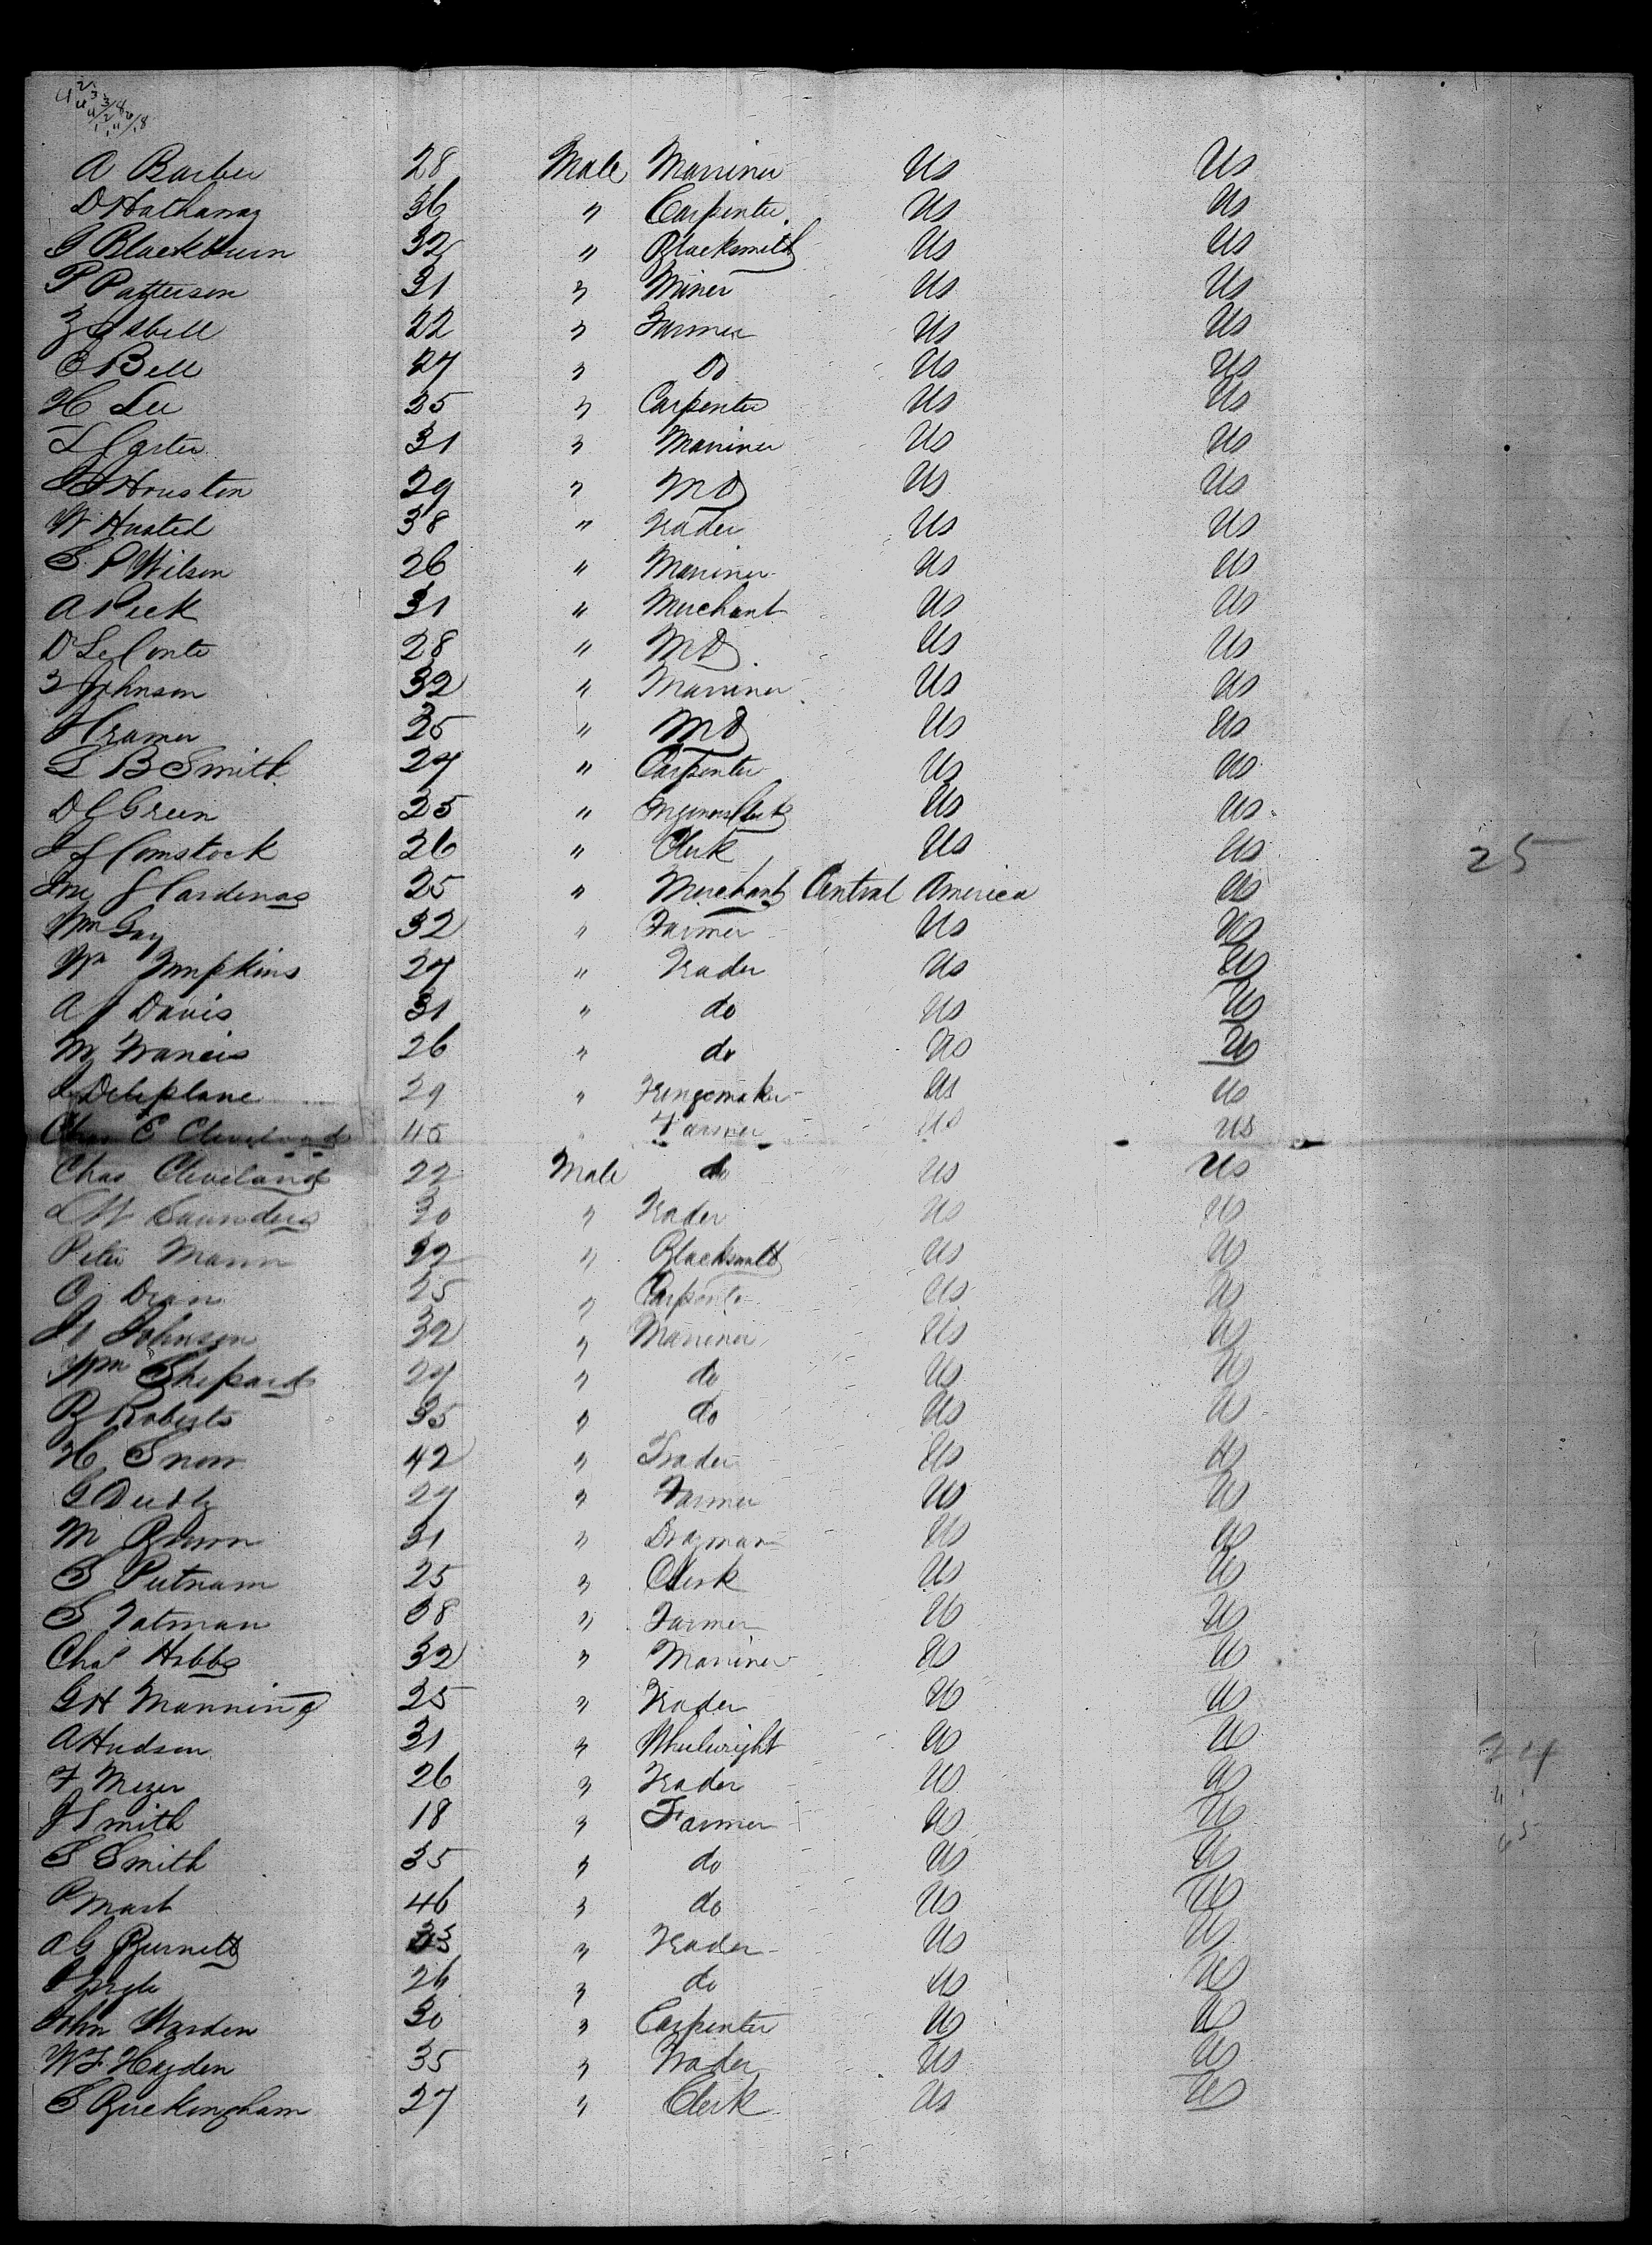 A Barber 28 Male Marriner Us Us
D Hathaway 36 " Carpenter Us Us
G Blackburn 32 " Blacksmith Us Us
P Patterson 31 " Miner Us Us
Z Isbell 22 " Farmer Us Us
E Bell 27 " Do Us Us
H Lee 35 " Carpenter Us Us
L Carter 31 " Marriner Us Us
Houston 29 " MD Us Us
W Husted 38 " Trader Us Us
S P Wilson 26 " Marriner Us Us
A Peck 31 " Merchant Us Us
D LeConte 28 " MD Us Us
Johnson 32 " Marriner Us Us
Kramer 35 " MD Us Us
L B Smith 27 " Carpenter Us Us
D C Green 25 " Us Us
Comstock 26 " Clerk Us Us 25
Cardenas 25 " Merchant Central America Us
Wm Gay 32 " Farmer Us Us
Wm Tompkins 27 " Trader Us Us
A J Davis 31 " do Us Us
M Francis 26 " do Us Us
Deleplane 29 " Fringemaker Us Us
Chas E Cleveland 45 Farmer Us Us
Chas Cleveland 22 Male do Us Us
L W Saunders 30 " Trader Us Us
Peter Mann 32 " Blacksmith Us Us
O Dean 25 " Carpenter Us Us
Johnson 32 " Marriner Us Us
Wm Shepard 27 " do Us Us
B Roberts 35 " do Us Us
H Snow 42 " Trader Us Us
G 27 " Farmer Us Us
M Brown 31 " Drayman Us Us
S Putnam 25 " Clerk Us Us
S Tatman 38 " Farmer Us Us
Chas Hobbs 32 " Marriner Us Us
G H Manning 25 " Trader Us Us
A Hudson 31 " Wheelwright Us Us
F Mezer 26 " Trader Us Us
J Smith 18 " Farmer Us Us
S Smith 35 " do Us Us
P Mart 46 " do Us Us
A G Burnett " Trader Us Us
26 " do Us Us
John Warden 30 " Carpenter Us Us
W F Hayden 35 " Trader Us Us
S Buckingham 27 " Clerk Us Us